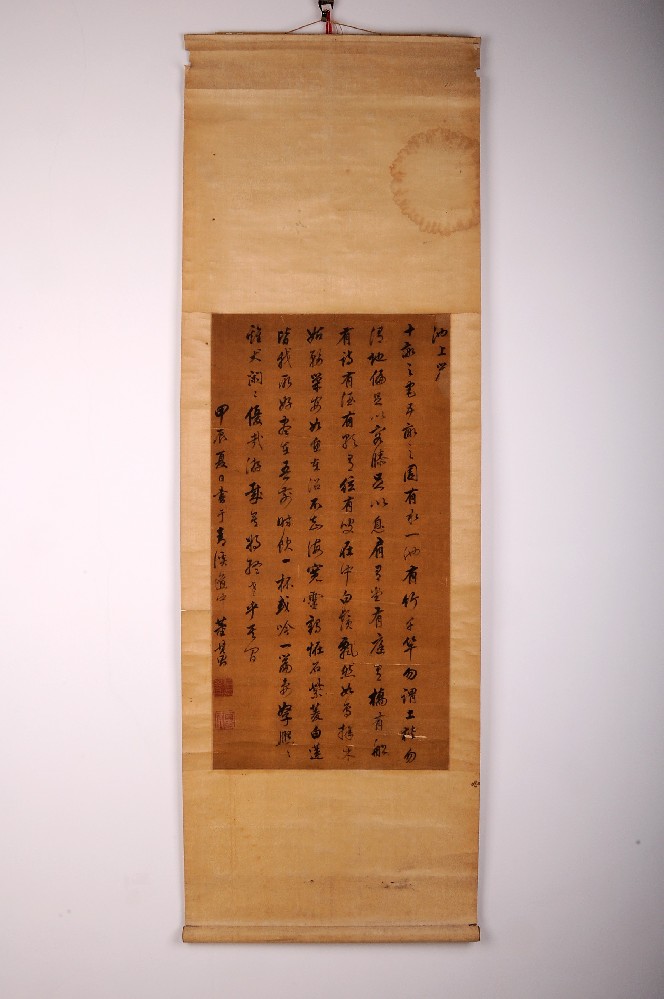 池上篇
十畝之宅五畝之園有水一池有竹千竿勿謂土狹勿
謂地偏足以容膝足以息肩有堂有庭有橋有船
有詩有酒有歌有絃有叟在中白鬚飄然如鳥擇木
姑務巢安如魚在沼不知海寬靈鶴怪石紫菱白蓮
皆我所好盡在吾前時飲一杯或吟一篇妻孥熙〻
雞犬閑〻優哉游哉吾將終老乎其間
甲辰夏日書于青溪道中 董其昌